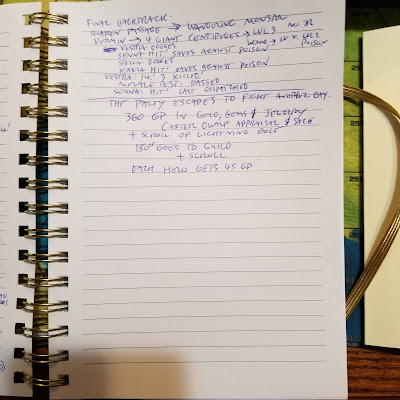 FINAL BACKTRACK.
SEARCH PASSAGE → WANDERING MONSTER
VERMIN → 4 GIANT CENTIPEDES → LVL 3 NO TR
VESTRA DODGES WOUND → SV V. LVL 2
SENNA HIT! SAVES AGAINST POISON POISON
SIELLA DODGES
CAELA HIT! SAVES AGAINST POISON
VESTRA: 14! 3 KILLED!
MORALE TEST: PASSED
SENNA HIT! LAST DISPATCHED
THE PARTY ESCAPES TO FIGHT ANOTHER DAY.
360 GP IN GOLD, GEMS & JEWELRY
(AFTER APPRAISAL & SALE
+ SCROLL OF LIGHTNING BOLT
180 GOES TO GUILD
+ SCROLL
EACH HERO GETS 45 GP